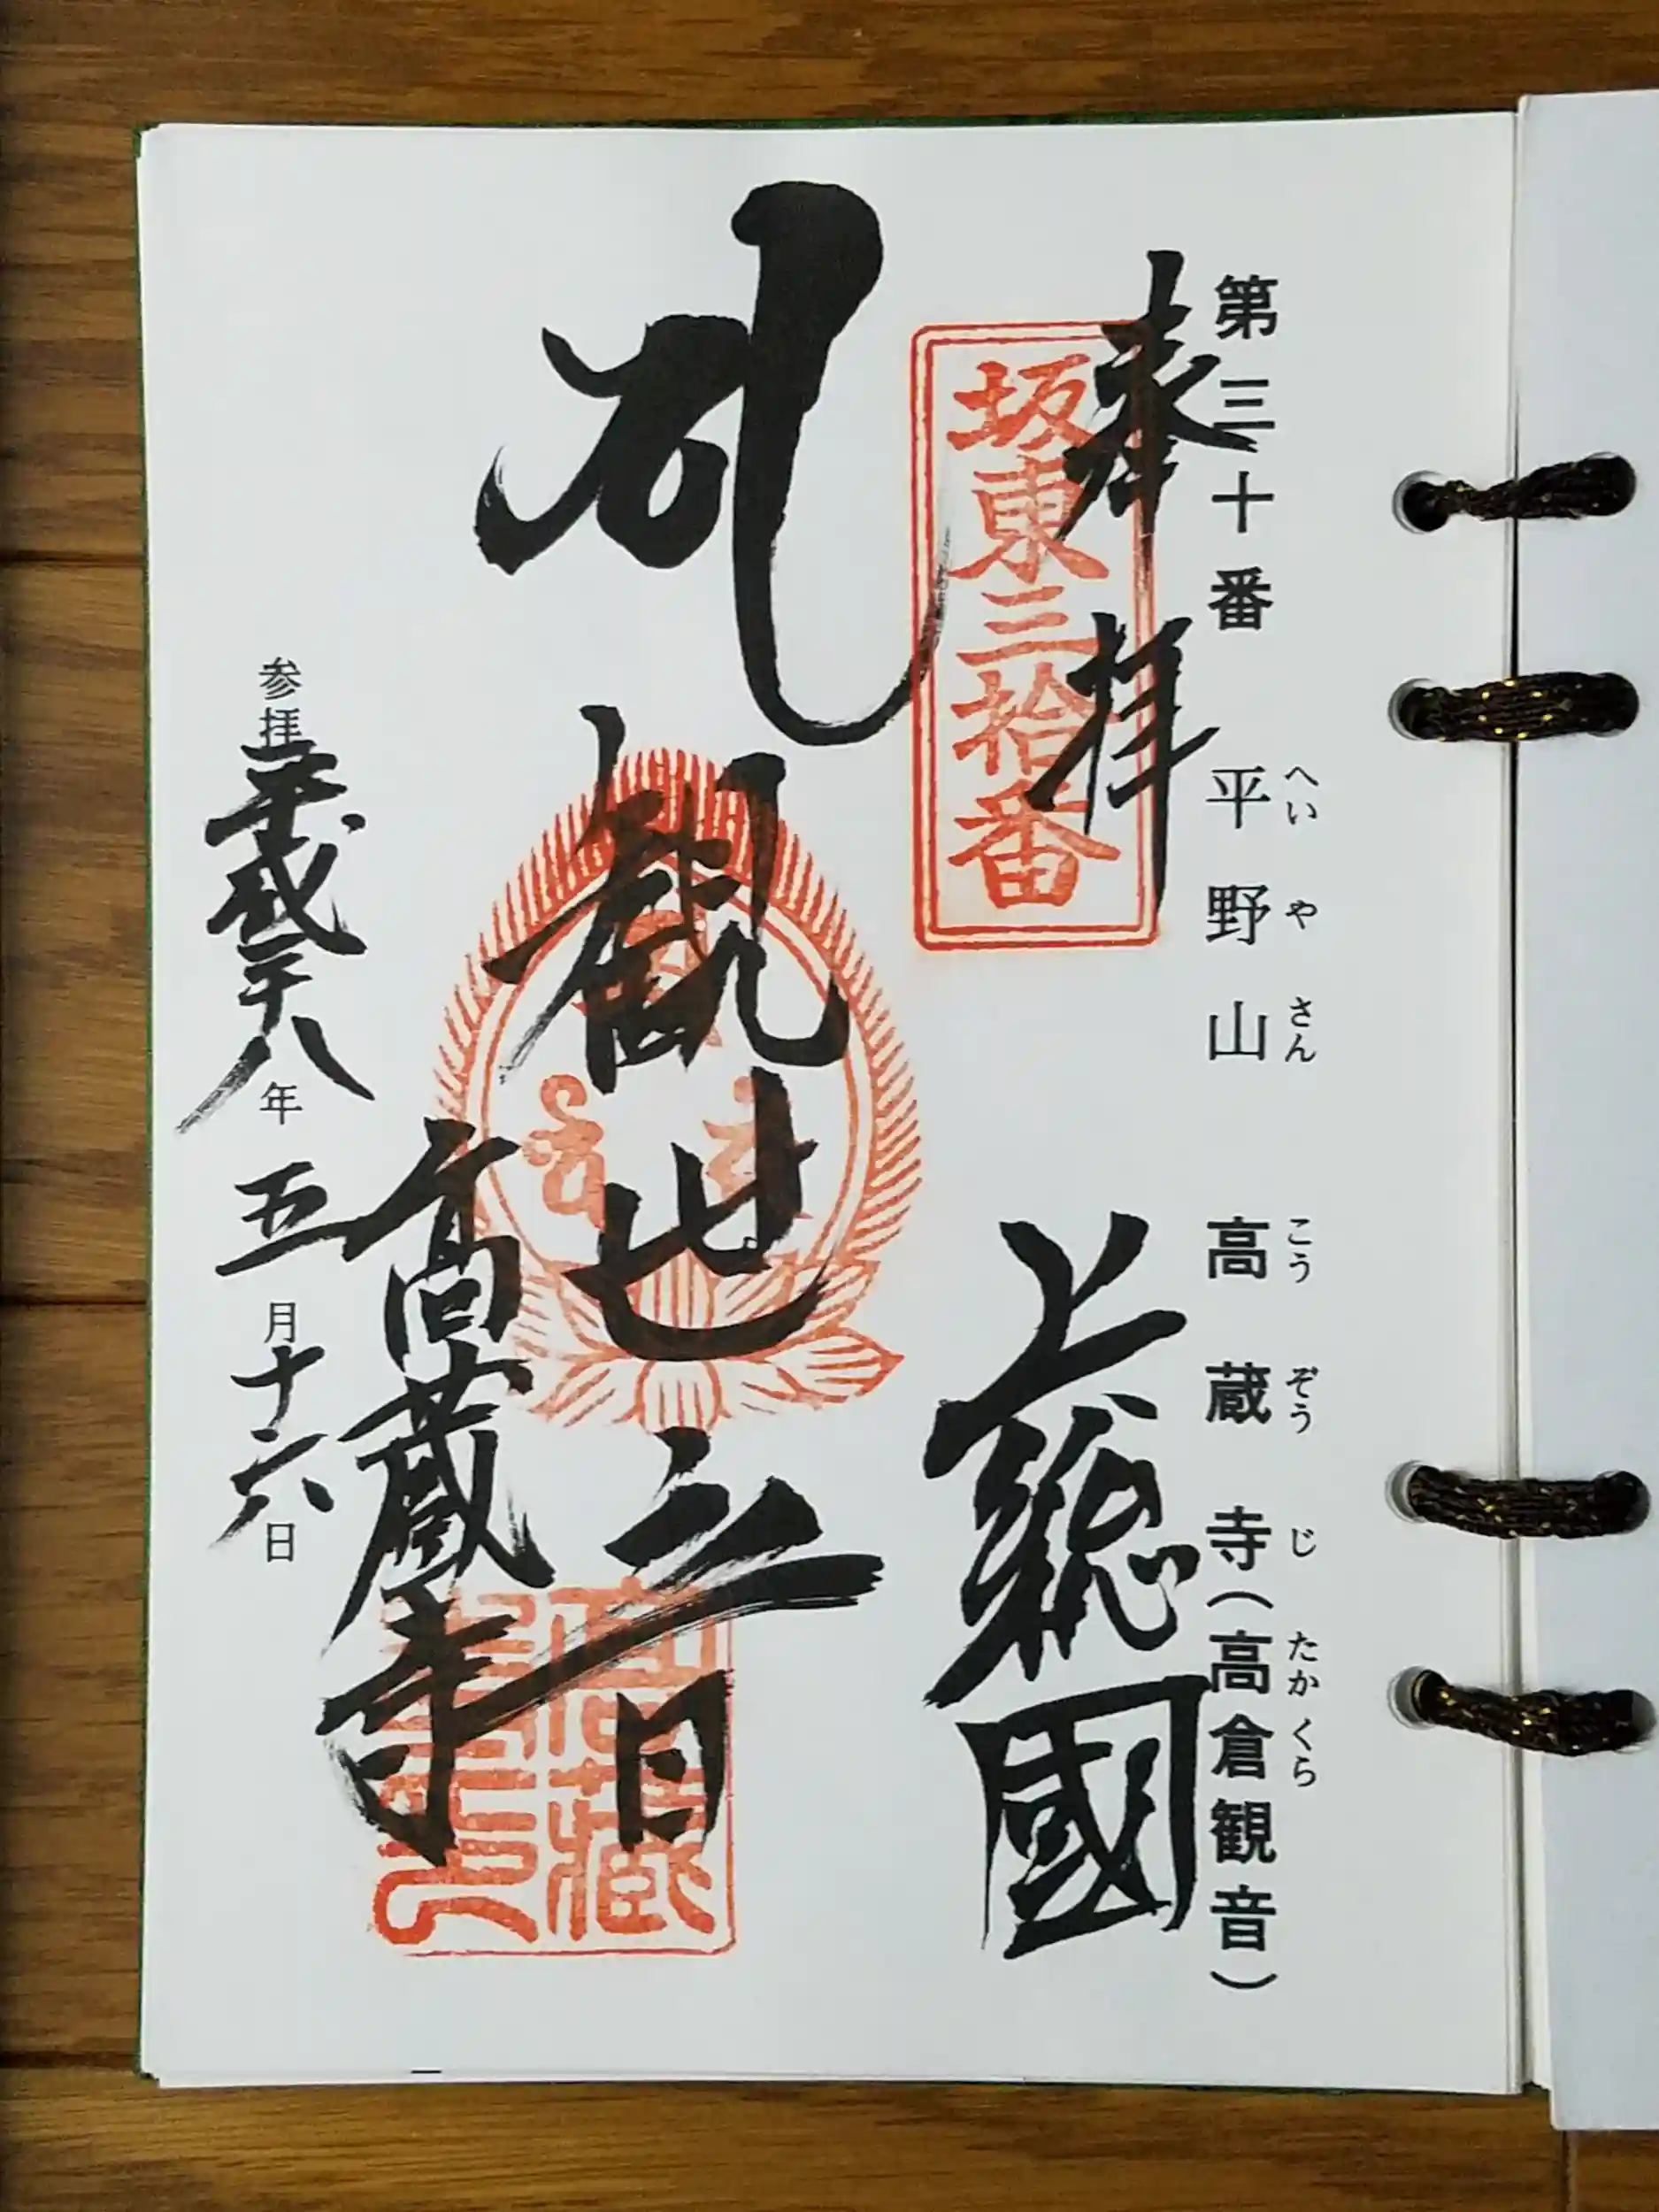 第三十番 平野山 高蔵寺(高倉観音)
へいやさん こうぞうじ たかくら
奉拝
坂東三拾番
上総國
観世音
高蔵寺
参拝平成二十八年五月十六日